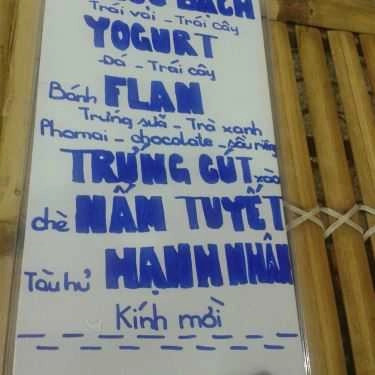 BẠCH
Trái vải - Trái cây
YOGURT
Đá - Trái cây
Bánh FLAN
Trứng sữa - Trà xanh
Phomai - chocolate - sầu riêng
TRỨNG CÚT xào
chè NẤM TUYẾT
Tàu hủ HẠNH NHÂN
Kính mời